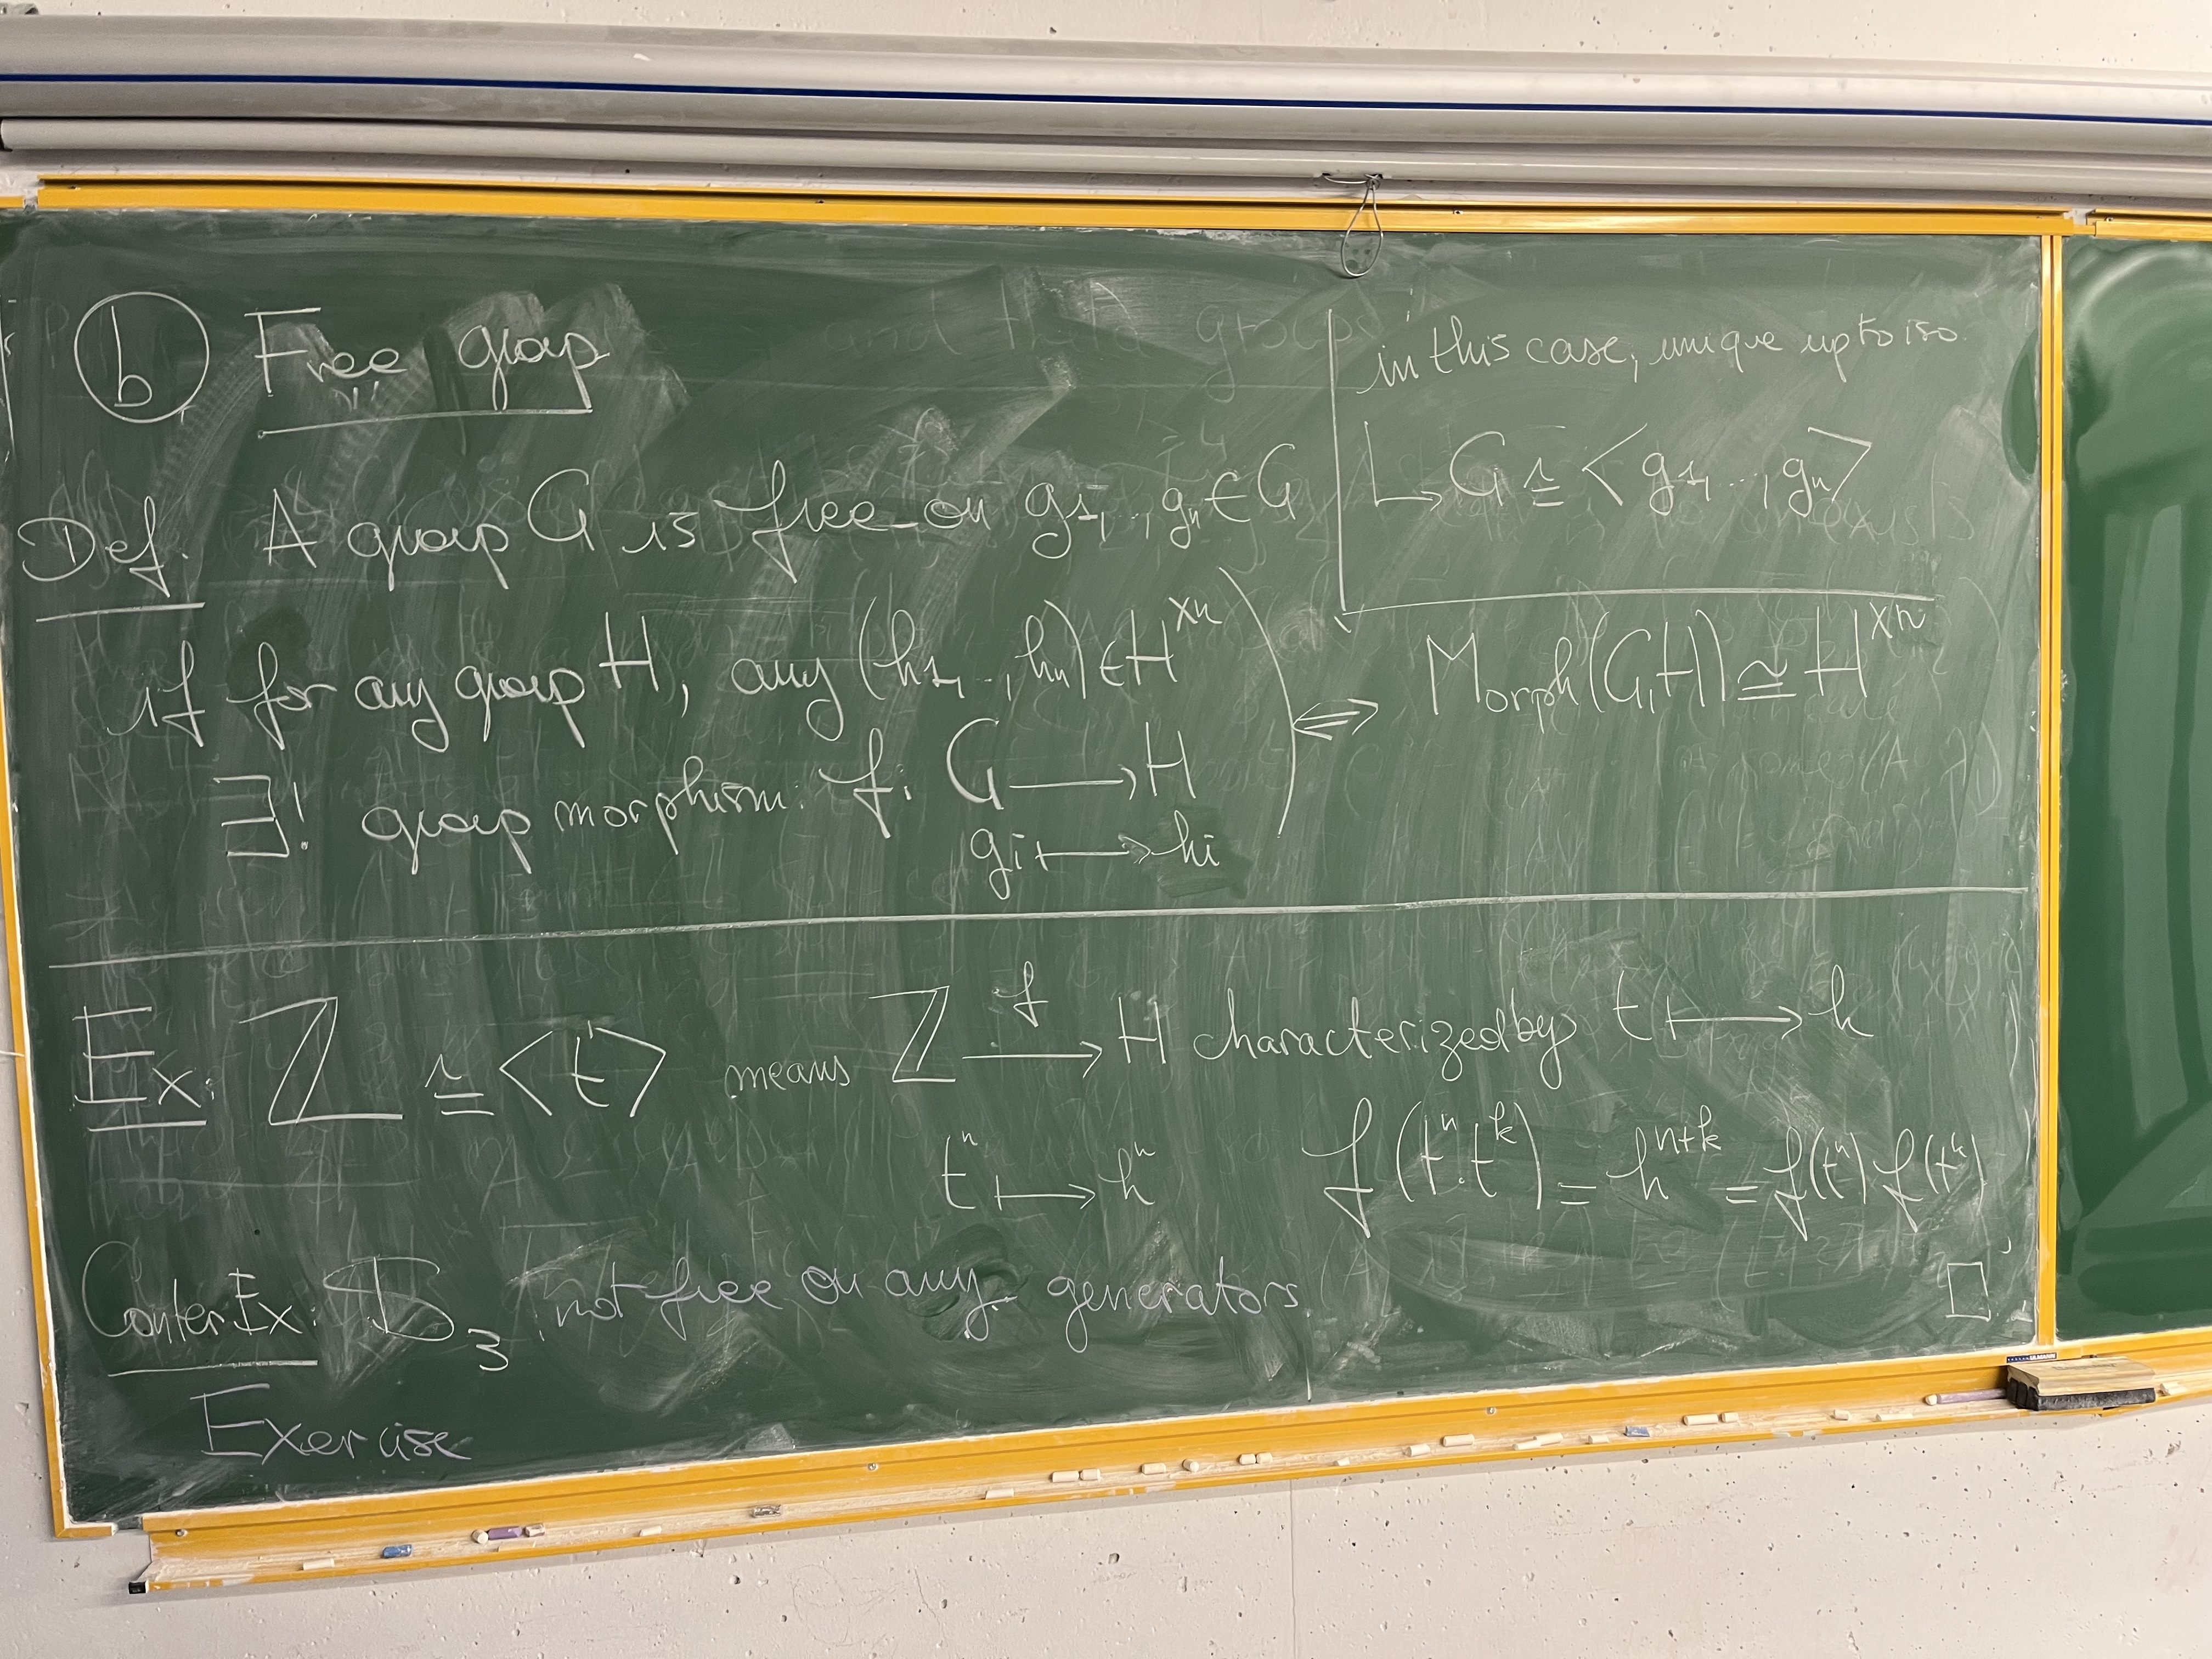 b Free group
Def. A group G is free on g1, .., gn ∈ G
if for any group H, any (h1, .., hn) ∈ H^×n
∃! group morphism: f: G ⟶ H
gi ⟼ hi
in this case, unique up to iso.
↳ G ≅ <g1, .., gn>
⇔ Morph(G,H) ≅ H^×n
Ex: ℤ ≅ <t> means ℤ ⟶^f H characterized by t ⟼ h
t^n ⟼ h^n f(t^n.t^k) = h^n+k = f(t^n) f(t^k)
Conter Ex: 𝕊3 not free on any generators
Exercise